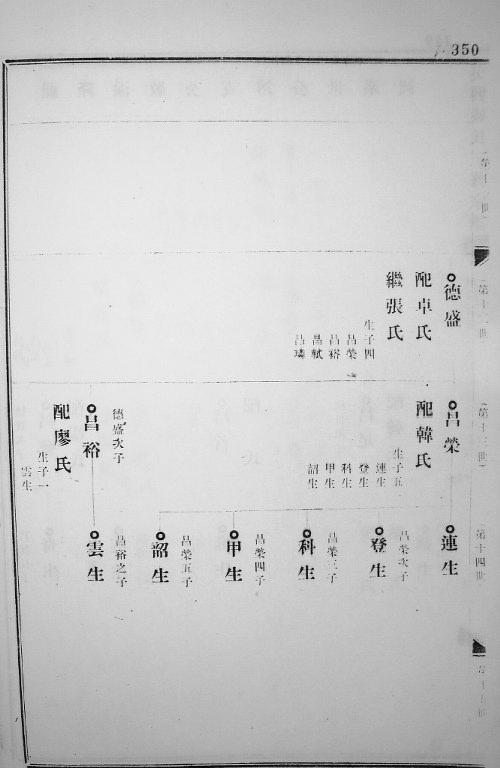 350
德盛
配卓氏
繼張氏
生子四
昌榮
昌裕
昌軾
昌璘
昌榮
配韓氏
生子五
連生
登生
科生
甲生
韶生
德盛次子
昌裕
配廖氏
生子一
雲生
第十四世
連生
昌榮次子
登生
昌榮三子
科生
昌榮四子
甲生
昌榮五子
韶生
昌裕之子
雲生